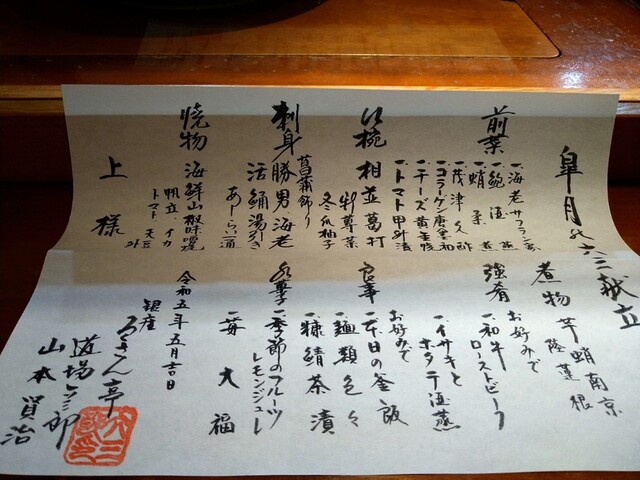 皐月の六三献立
前菜
一、海老サフラン煮
一、鮑酒煮
一、蛸柔煮
一、茂津久酢
一、コラーゲン唐墨和
一、チーズ黄金物
一、トマト甲州漬
お椀
相並葛打
彩蓴菜
冬瓜柚子
刺身
菖蒲飾り
勝男海老
活鯒湯引き
あしらい一通
焼物
海鮮山椒味噌焼
帆立イカ
トマト天豆
外
上様
煮物
芋蛸南京
陸蓮根
強肴
お好みで
一、和牛ローストビーフ
一、イサキとホタテ酒蒸
食事
お好みで
一、本日の釜飯
一、麺類色々
一、糠鯖茶漬
水菓子
一、季節のフルーツ
レモンジュレ
一、苺大福
令和五年五月吉日
銀座
ろくさん亭
道場六三郎
山本賢治